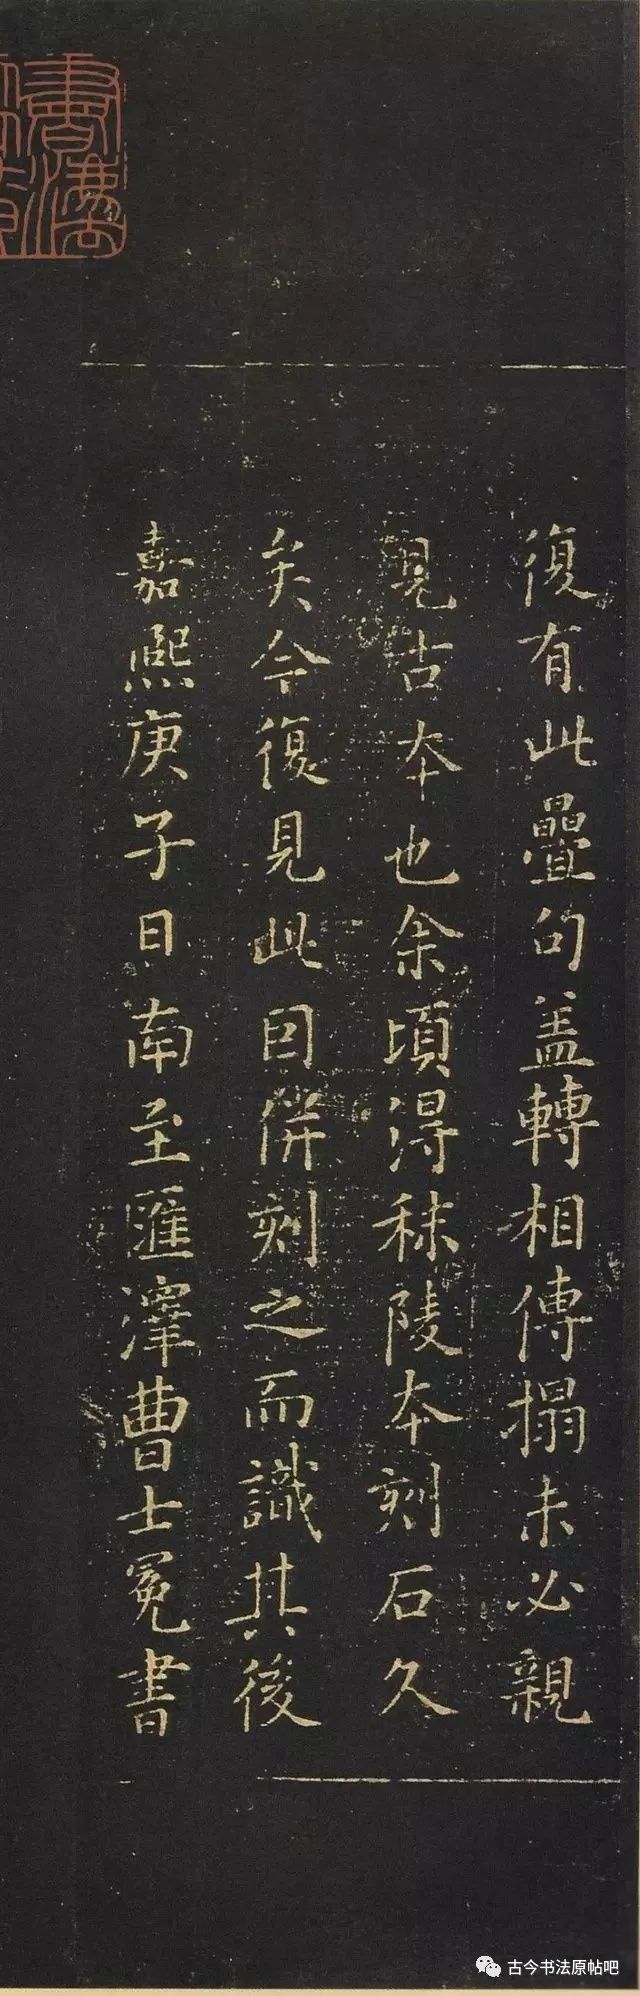 復有此疊句盖轉相傳搨未必親
見古本也余頃得秣陵本刻石久
矣今復見此因併刻之而識其後
嘉熙庚子日南至匯澤曹士冕書
古今书法原帖吧